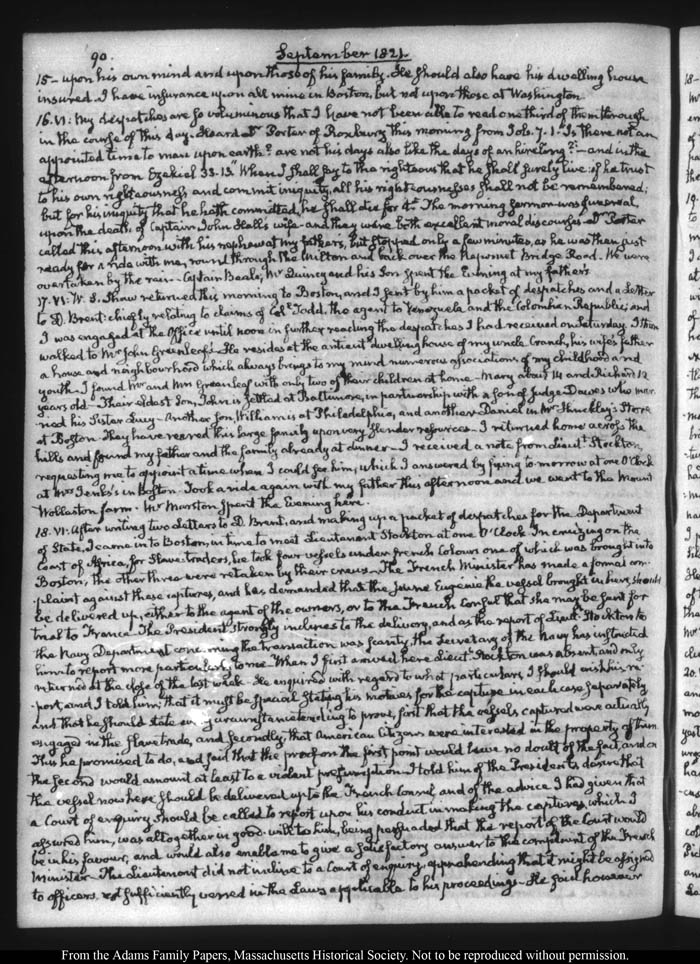 90.
September 1821.
15- upon his own mind and upon those of his family. He should also have his dwelling house
insured. I have insurance upon all mine in Boston, but not upon those at Washington.
16. VI: My despatches are so voluminous that I have not been able to read one third of them through
in the course of this day. Heard Dr Porter of Roxbury this morning from Job. 7. 1. "Is there not an
appointed time to man upon earth? are not his days also like the days of an hireling?"—and in the
afternoon from Ezekiel 33. 13. "When I shall say to the righteous that he shall surely live; if he trust
to his own righteousness and commit iniquity, all his righteousnesses shall not be remembered;
but for his iniquity that he hath committed, he shall die for it." The morning sermon was funeral
upon the death of Captain John Hall's wife—and they were both excellent moral discourses—Dr Porter
called this afternoon with his nephew at my fathers, but stopped only a few minutes, as he was then just
ready for a ride with me, round through the Milton and back over the Neponset Bridge Road. We were
overtaken by the rain—Captain Beale, Mr Quincy and his Son spent the Evening at my father's
17. VI: W. S. Shaw returned this morning to Boston, and I sent by him a packet of despatches and a Letter
to D. Brent: chiefly relating to claims of Coll. Todd, the agent to Venezuela and the Colombian Republic; and
I was engaged at the Office until noon in further reading the despatches I had received on Saturday. I then
walked to Mr John Greenleaf's. He resides at the antient dwelling house of my uncle Cranch, his wife's father
a house and neighbourhood which always brings to my mind numerous associations of my childhood and
youth—I found Mr and Mrs Greenleaf with only two of their children at home—Mary about 14 and Richard 12
years old—Their Eldest Son, John is settled at Baltimore, in partnership with a son of Judge Dawes who mar-
ried his Sister Lucy—Another Son, William is at Philadelphia, and another Daniel in Mr Hinckley's Store
at Boston. They have reared this large family upon very slender resources—I returned home across the
hills and found my father and the family already at dinner—I received a note from Lieut. Stockton,
requesting me to appoint a time when I could see him; which I answered by fixing to-morrow at one O'Clock
at Mrs Jenks's in Boston. Took a ride again with my father this afternoon and we went to the Mount
Wollaston farm. Mr Marston spent the Evening here.
18. VI. After writing two Letters to D. Brent, and making up a packet of despatches for the Department
of State, I came in to Boston, in time to meet Lieutenant Stockton at one O'Clock. In cruizing on the
coast of Africa, for Slave-traders, he took four vessels under French Colours one of which was brought into
Boston, the other three were retaken by their crews—The French Minister has made a formal com-
plaint against these captures, and has demanded that the Jeune Eugenie the vessel brought in here, should
be delivered up, either to the agent of the owners, or to the French Consul that she may be sent for
trial to France. The President strongly inclines to the delivery, and as the report of Lieut. Stockton to
the Navy Department concerning the transaction was scanty, the Secretary of the Navy has instructed
him to report more particularly to me. When I first arrived here Lieut. Stockton was absent, and only
returned at the close of the last week. He enquired with regard to what particulars, I should wish his re-
port, and I told him, that it must be special stating his motives for the capture in each case separately
and that he should state every circumstance tending to prove, first that the vessels captured were actually
engaged in the Slave trade, and secondly, that American Citizens were interested in the property of them.
This he promised to do, and said that the proof on the first point would leave no doubt of the fact, and on
the second would amount at least to a violent presumption. I told him of the President's desire that
the vessel now here should be delivered up to the French Consul, and of the advice I had given that
a Court of enquiry should be called to report upon his conduct in making the captures, which I
assured him, was altogether in good-will to him, being persuaded that the report of the Court would
be in his favour, and would also enable me to give a satisfactory answer to the complaint of the French
Minister. The Lieutenant did not incline to a Court of enquiry, apprehending that it might be assigned
to officers, not sufficiently versed in the Laws applicable to his proceedings—He said however
From the Adams Family Papers, Massachusetts Historical Society. Not to be reproduced without permission.